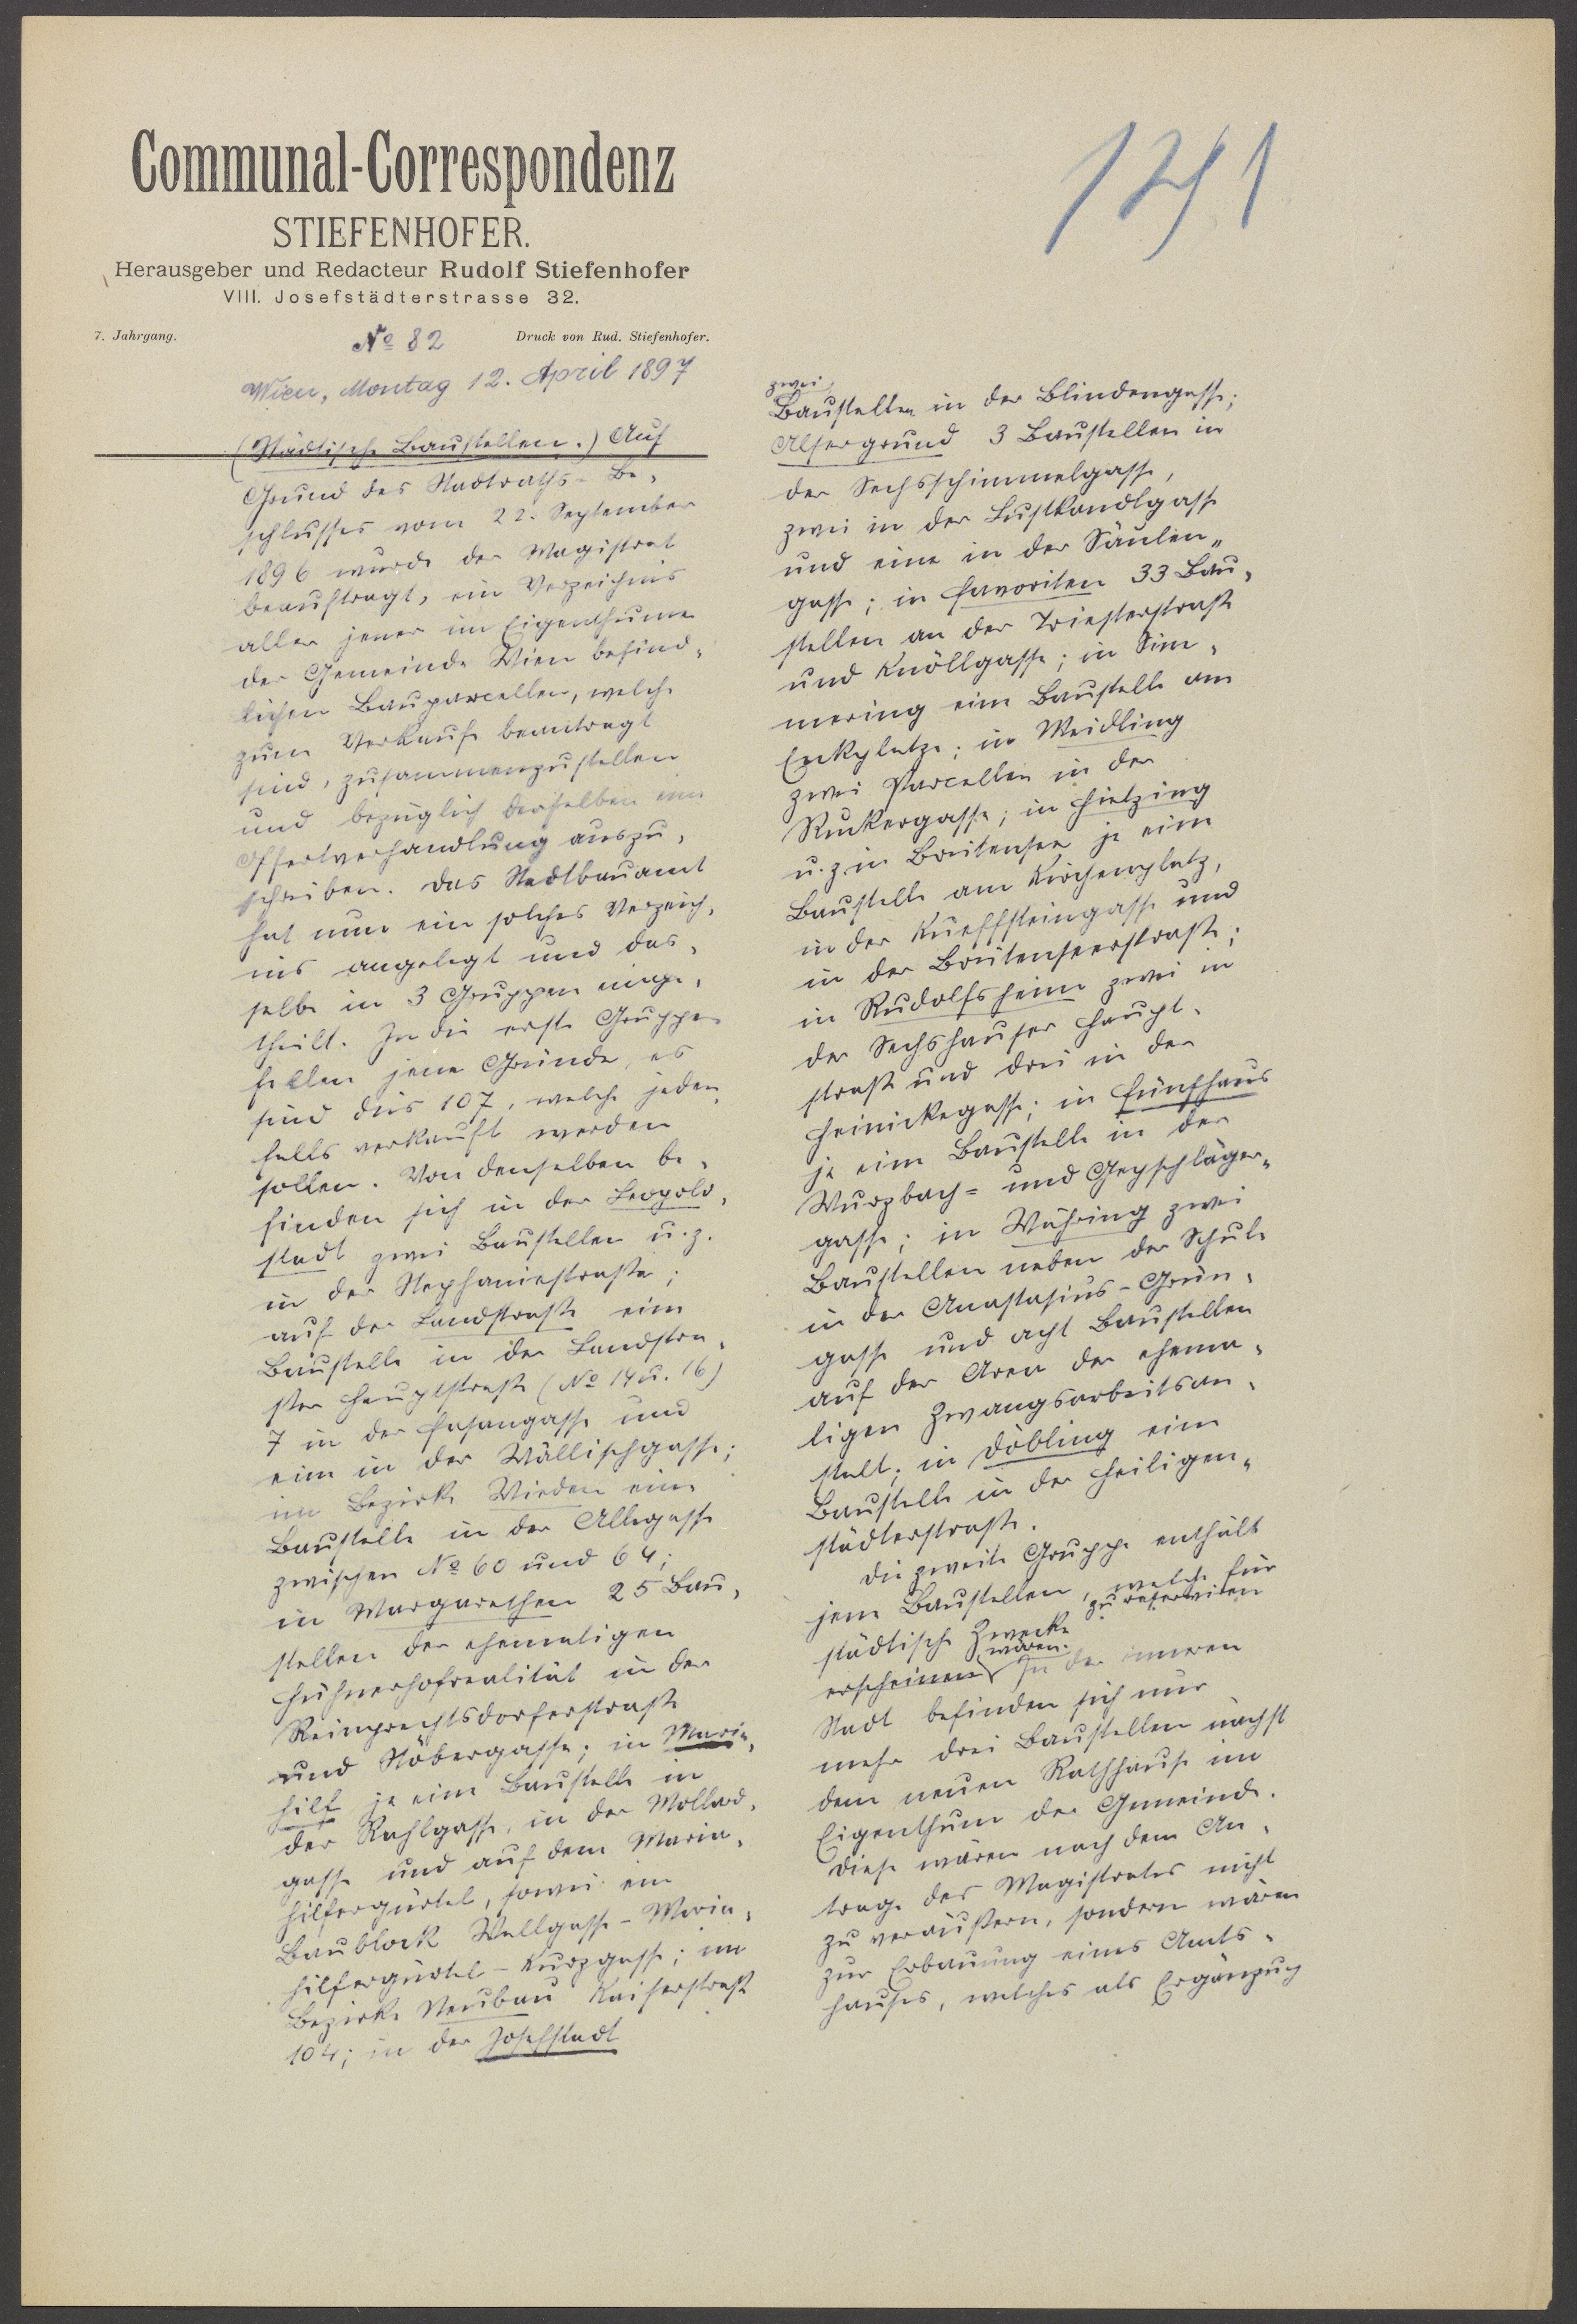 Communal-Correspondenz
STIEFENHOFER.
Herausgeber und Redacteur Rudolf Stiefenhofer
VIII. Josefstädterstrasse 32.
7. Jahrgang.
Druck von Rud. Stiefenhofer.
141
№ 82
Wien, Montag 12. April 1897
(Städtische Baustellen.) Auf
Grund des Stadtraths-Be-
schlusses vom 22. September
1896 wurde der Magistrat
beauftragt, ein Verzeichnis
aller jener im Eigenthume
der Gemeinde Wien befind-
lichen Bauparcellen, welche
zum Verkaufe beantragt
sind, zusammenzustellen
und bezüglich derselben eine
Offertverhandlung auszu-
schreiben. Das Stadtbauamt
hat nun ein solches Verzeich-
nis angelegt und das-
selbe in 3 Gruppen einge-
theilt. In die erste Gruppe
fallen jene Gründe, es
sind dies 107, welche jeden-
falls verkauft werden
sollen. Von denselben be-
finden sich in der Leopold-
stadt zwei Baustellen u. z.
in der Stephaniestraße;
auf der Landstraße eine
Baustelle in der Landstra-
ßer Hauptstraße (№ 14 u. 16)
7 in der Fasangasse und
eine in der Wällischgasse;
im Bezirke Wieden eine
Baustelle in der Alleegasse
zwischen № 60 und 64;
in Margarethen 25 Bau-
stellen der ehemaligen
Hühnerhofrealität in der
Reinprechtsdorferstraße
und Stöbergasse; in Maria-
hilf je eine Baustelle in
der Rahlgasse, in der Mollard-
gasse und auf dem Maria-
hilfergürtel, sowie ein
Baublock Wallgasse-Maria-
hilfergürtel-Kurzgasse; im
Bezirke Neubau Kaiserstraße
104; in der Josefstadt
zwei
Baustellen in der Blindengasse;
Alsergrund 3 Baustellen in
der Sechsschimmelgasse,
zwei in der Lustkandlgasse
und eine in der Säulen-
gasse; in Favoriten 33 Bau-
stellen an der Triesterstraße
und Knöllgasse; in Sim-
mering eine Baustelle am
Enkplatze; in Meidling
zwei Parcellen in der
Ruckergasse; in Hietzing
u. z. in Breitensee je eine
Baustelle am Kirchenplatz,
in der Kueffsteingasse und
in der Breitenseerstraße;
in Rudolfsheim zwei in
der Sechshauser Haupt-
straße und drei in der
Heinickegasse; in Fünfhaus
je eine Baustelle in der
Wurzbach- und Geyschläger-
gasse; in Währing zwei
Baustellen neben der Schule
in der Anastasius-Grün-
gasse und acht Baustellen
auf der Area der ehema-
ligen Zwangsarbeitsan-
stalt; in Döbling eine
Baustelle in der Heiligen-
städterstraße.
Die zweite Gruppe enthält
jene Baustellen, welche für
städtische Zwecke zu reserviren
erscheinen wären. In der inneren
Stadt befinden sich nur
mehr drei Baustellen nächst
dem neuen Rathhause im
Eigenthum der Gemeinde.
Diese wären nach dem An-
trage des Magistrates nicht
zu veräußern, sondern wären
zur Erbauung eines Amts-
hauses, welches als Ergänzung